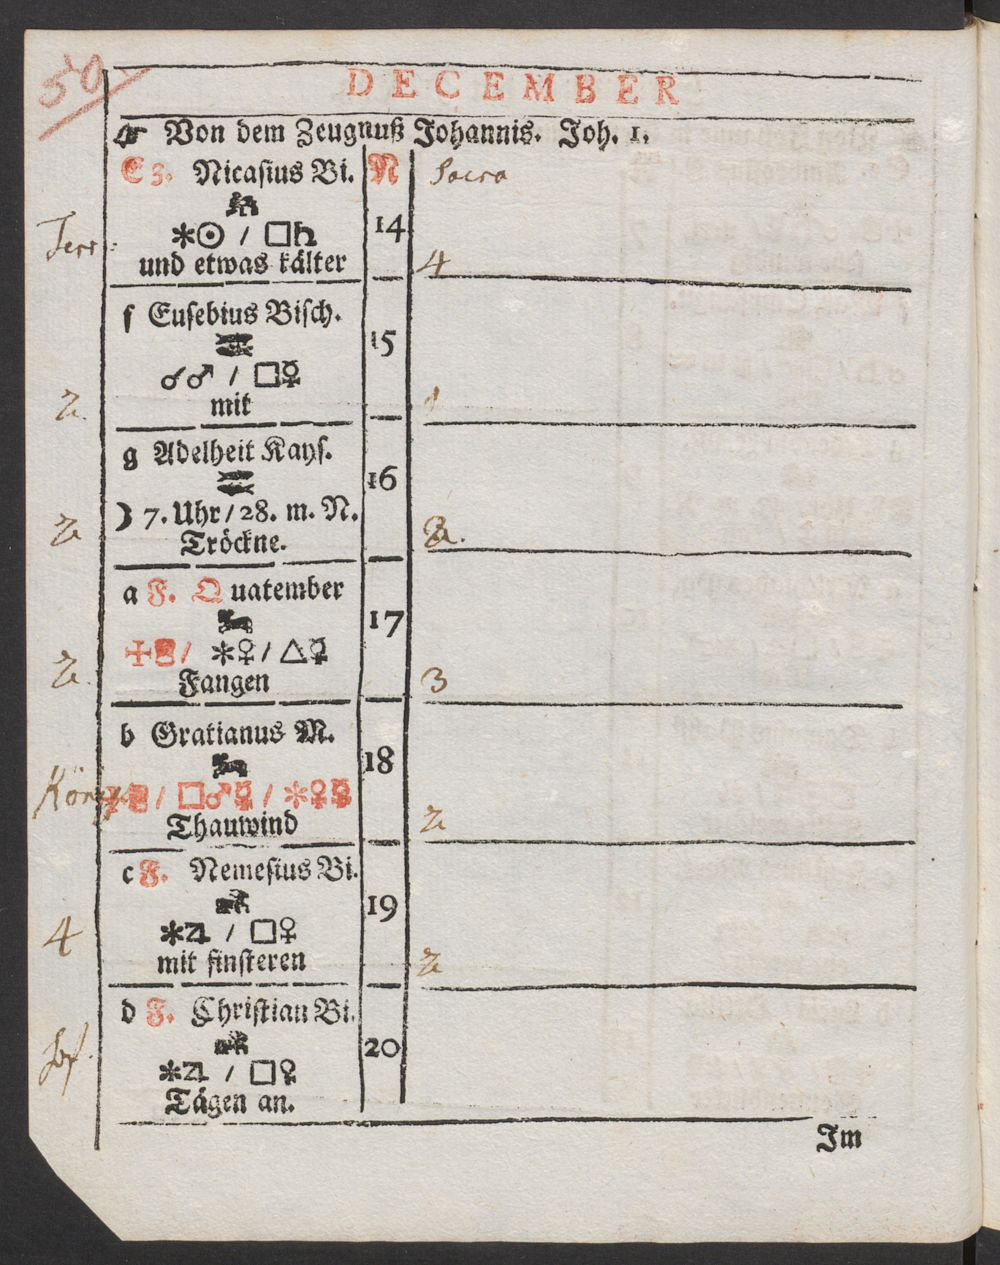 50
DECEMBER
☞ Von dem Zeugnuß Johannis. Joh. 1.
E 3. Nicasius Bi. N Sacro
✶☉ / □♄ 14
Terr:
und etwas kälter 4
f Eusebius Bisch.
15
☌♂ / □☿
mit 1
g Adelheit Kays.
16
☽ 7. Uhr / 28. m. N.
Tröckne.
a F. Quatember
17
✶♀ / △☿
Fangen 3
b Gratianus M.
18
□♂☿ / ✶♀☿
Thauwind
c F. Nemesius Bi.
19
✶♃ / □♀
4
mit finsteren
d F. Christian Bi.
20
✶♃ / □♀
Tägen an.
Im